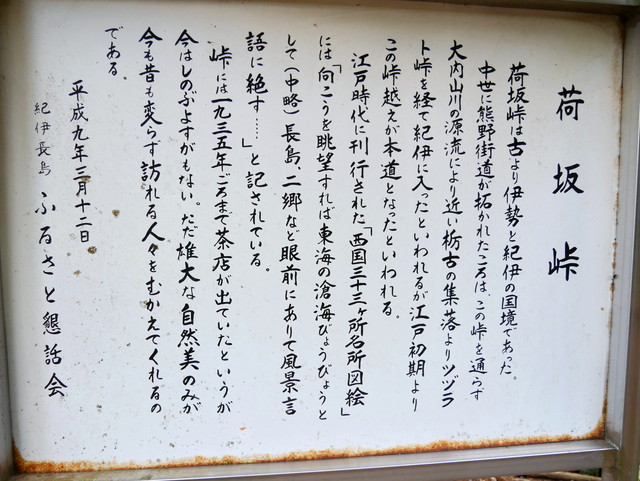 荷坂峠
荷坂峠は古より伊勢と紀伊の国境であった。
中世に熊野街道が拓かれたころは、この峠を通らず
大内山川の源流により近い栃古の集落よりツヅラ
ト峠を経て紀伊に入ったといわれるが江戸初期より
この峠越えが本道となったといわれる。
江戸時代に刊行された「西国三十三ヶ所名所図絵」
には「向こうを眺望すれば東海の滄海びょうびょうと
して(中略)長島、二郷など眼前にありて風景言
語に絶す……」と記されている。
峠には一九三五年ごろまで茶店が出ていたというが
今はしのぶよすがもない。ただ雄大な自然美のみが
今も昔も変らず訪れる人々をむかえてくれるの
である
平成九年三月十二日
紀伊長島 ふるさと懇話会